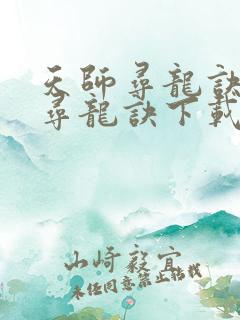 天師尋龍訣
尋龍訣下載
山崎毅宜
未經同意禁止轉載